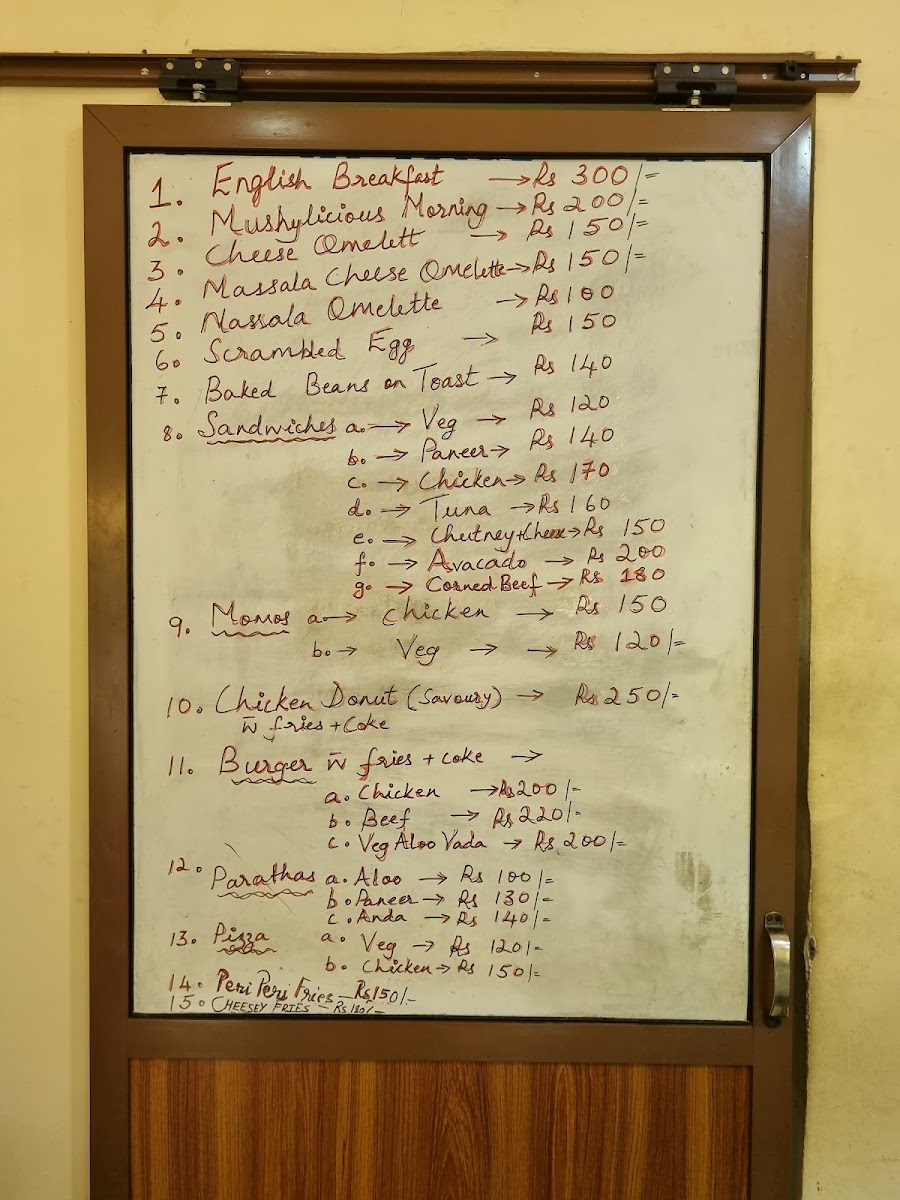 1. English Breakfast → Rs 300/=
2. Mushylicious Morning → Rs 200/=
3. Cheese Omelett → Rs 150/=
4. Massala Cheese Omelette → Rs 150/=
5. Massala Omelette → Rs 100
6. Scrambled Egg → Rs 150
7. Baked Beans on Toast → Rs 140
8. Sandwiches a. → Veg → Rs 120
b. → Paneer → Rs 140
c. → Chicken → Rs 170
d. → Tuna → Rs 160
e. → Chutney+Cheese → Rs 150
f. → Avacado → Rs 200
g. → Corned Beef → Rs 180
9. Momos a. → Chicken → Rs 150
b. → Veg → → Rs 120/=
10. Chicken Donut (Savoury) → Rs 250/=
w̄ fries + Coke
11. Burger w̄ fries + coke →
a. Chicken → Rs 200/=
b. Beef → Rs 220/=
c. Veg Aloo Vada → Rs 200/=
12. Parathas a. Aloo → Rs 100/=
b. Paneer → Rs 130/=
c. Anda → Rs 140/=
13. Pizza a. Veg → Rs 120/=
b. Chicken → Rs 150/=
14. Peri Peri Fries – Rs 150/-
15. CHEESEY FRIES – Rs 180/-